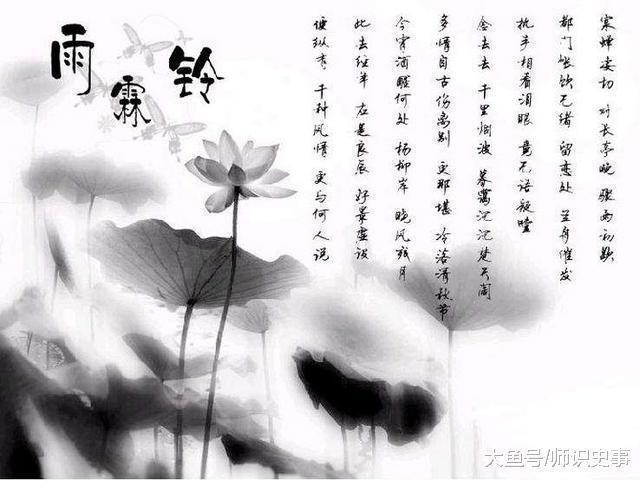 雨霖铃
寒蝉凄切 对长亭晚 骤雨初歇
都门帐饮无绪 留恋处 兰舟催发
执手相看泪眼 竟无语凝噎
念去去 千里烟波 暮霭沉沉楚天阔
多情自古伤离别 更那堪 冷落清秋节
今宵酒醒何处 杨柳岸 晓风残月
此去经年 应是良辰 好景虚设
便纵有 千种风情 更与何人说
大鱼号/师识史事